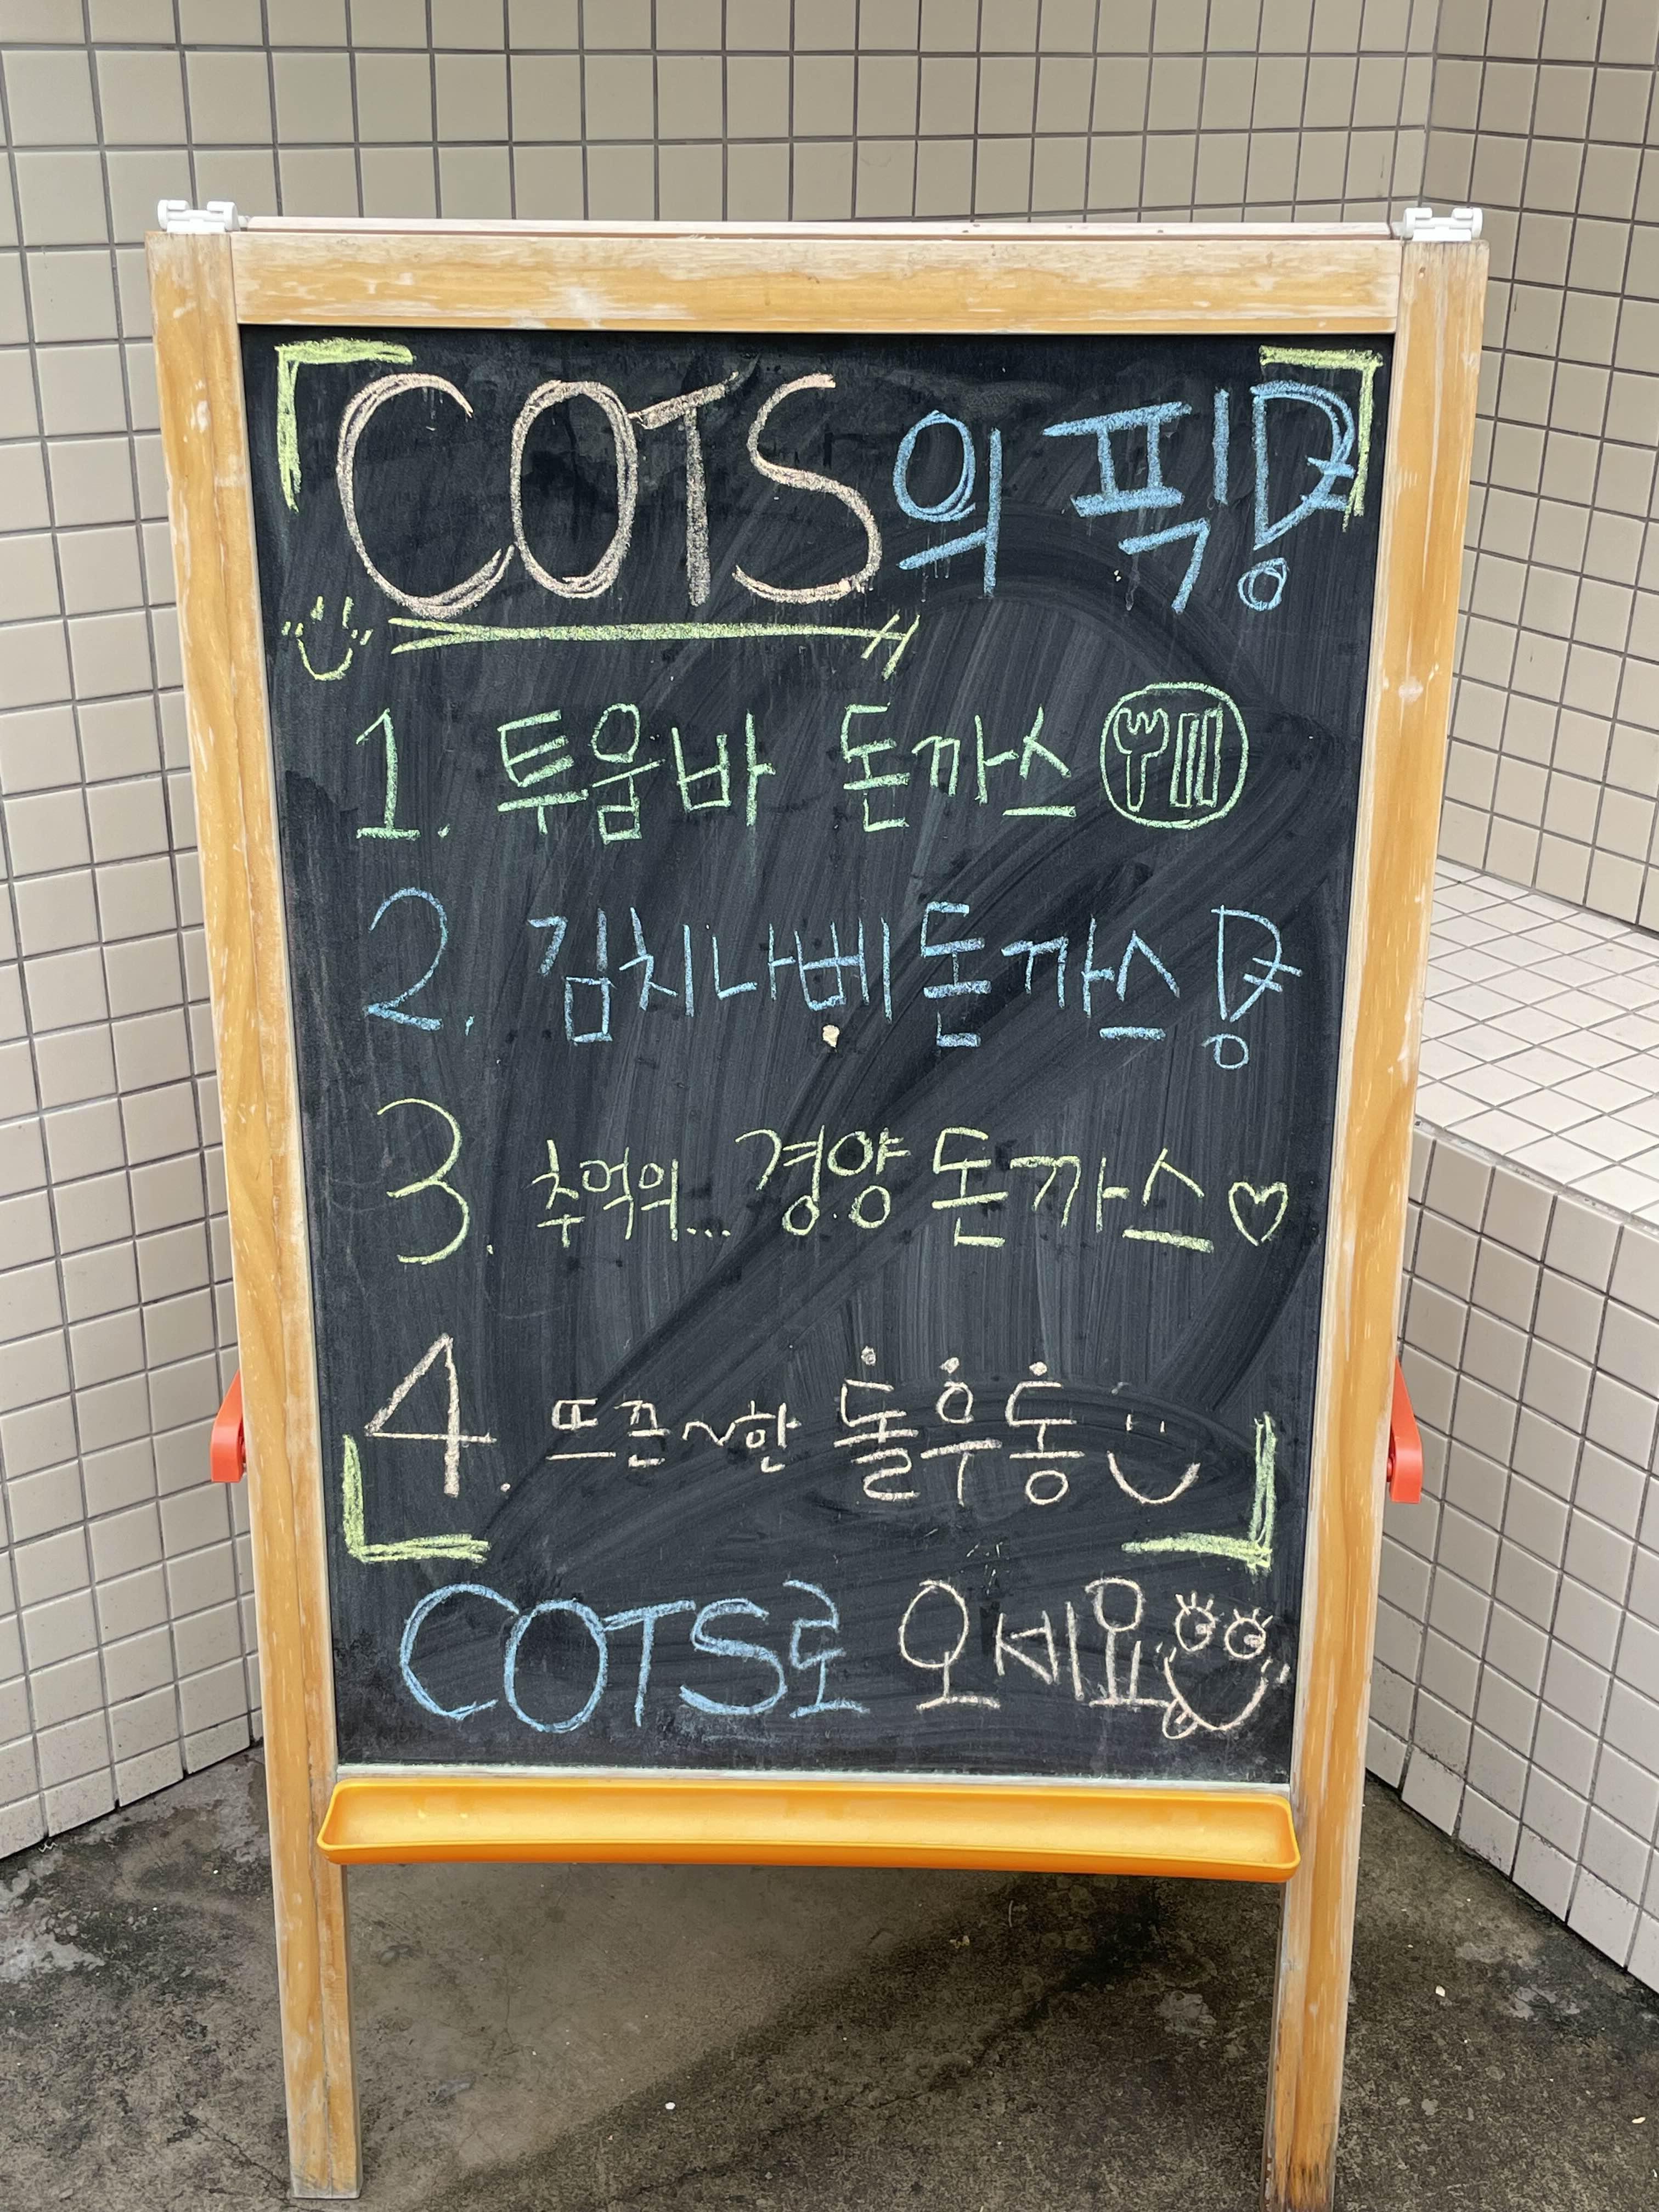 COTS의 픽!
1. 투움바 돈까스
2. 김치나베돈까스!
3. 추억의... 경양돈까스♡
4. 뜨끈~한 돌우동
COTS로 오세요